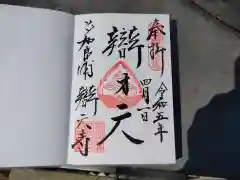 奉拝
令和五年
四月一日
辯才天
辯天寺